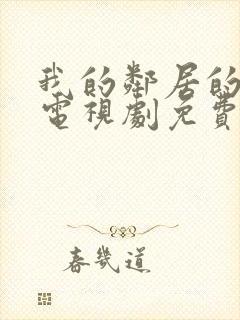 我的鄰居的
電視劇免費
春幾道